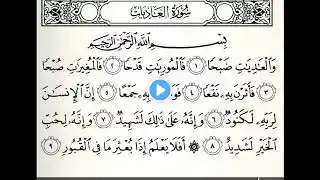 سُورَةُ العَادِيَات
بِسْمِ ٱللَّهِ ٱلرَّحْمَٰنِ ٱلرَّحِيمِ
وَٱلْعَٰدِيَٰتِ ضَبْحًا ١ فَٱلْمُورِيَٰتِ قَدْحًا ٢ فَٱلْمُغِيرَٰتِ صُبْحًا
٣ فَأَثَرْنَ بِهِۦ نَقْعًا ٤ بِهِۦ جَمْعًا ٥ إِنَّ ٱلْإِنسَٰنَ
لِرَبِّهِۦ لَكَنُودٌ ٦ وَإِنَّهُۥ عَلَىٰ ذَٰلِكَ لَشَهِيدٌ ٧ وَإِنَّهُۥ لِحُبِّ
ٱلْخَيْرِ لَشَدِيدٌ ٨ أَفَلَا يَعْلَمُ إِذَا بُعْثِرَ مَا فِى ٱلْقُبُورِ ٩